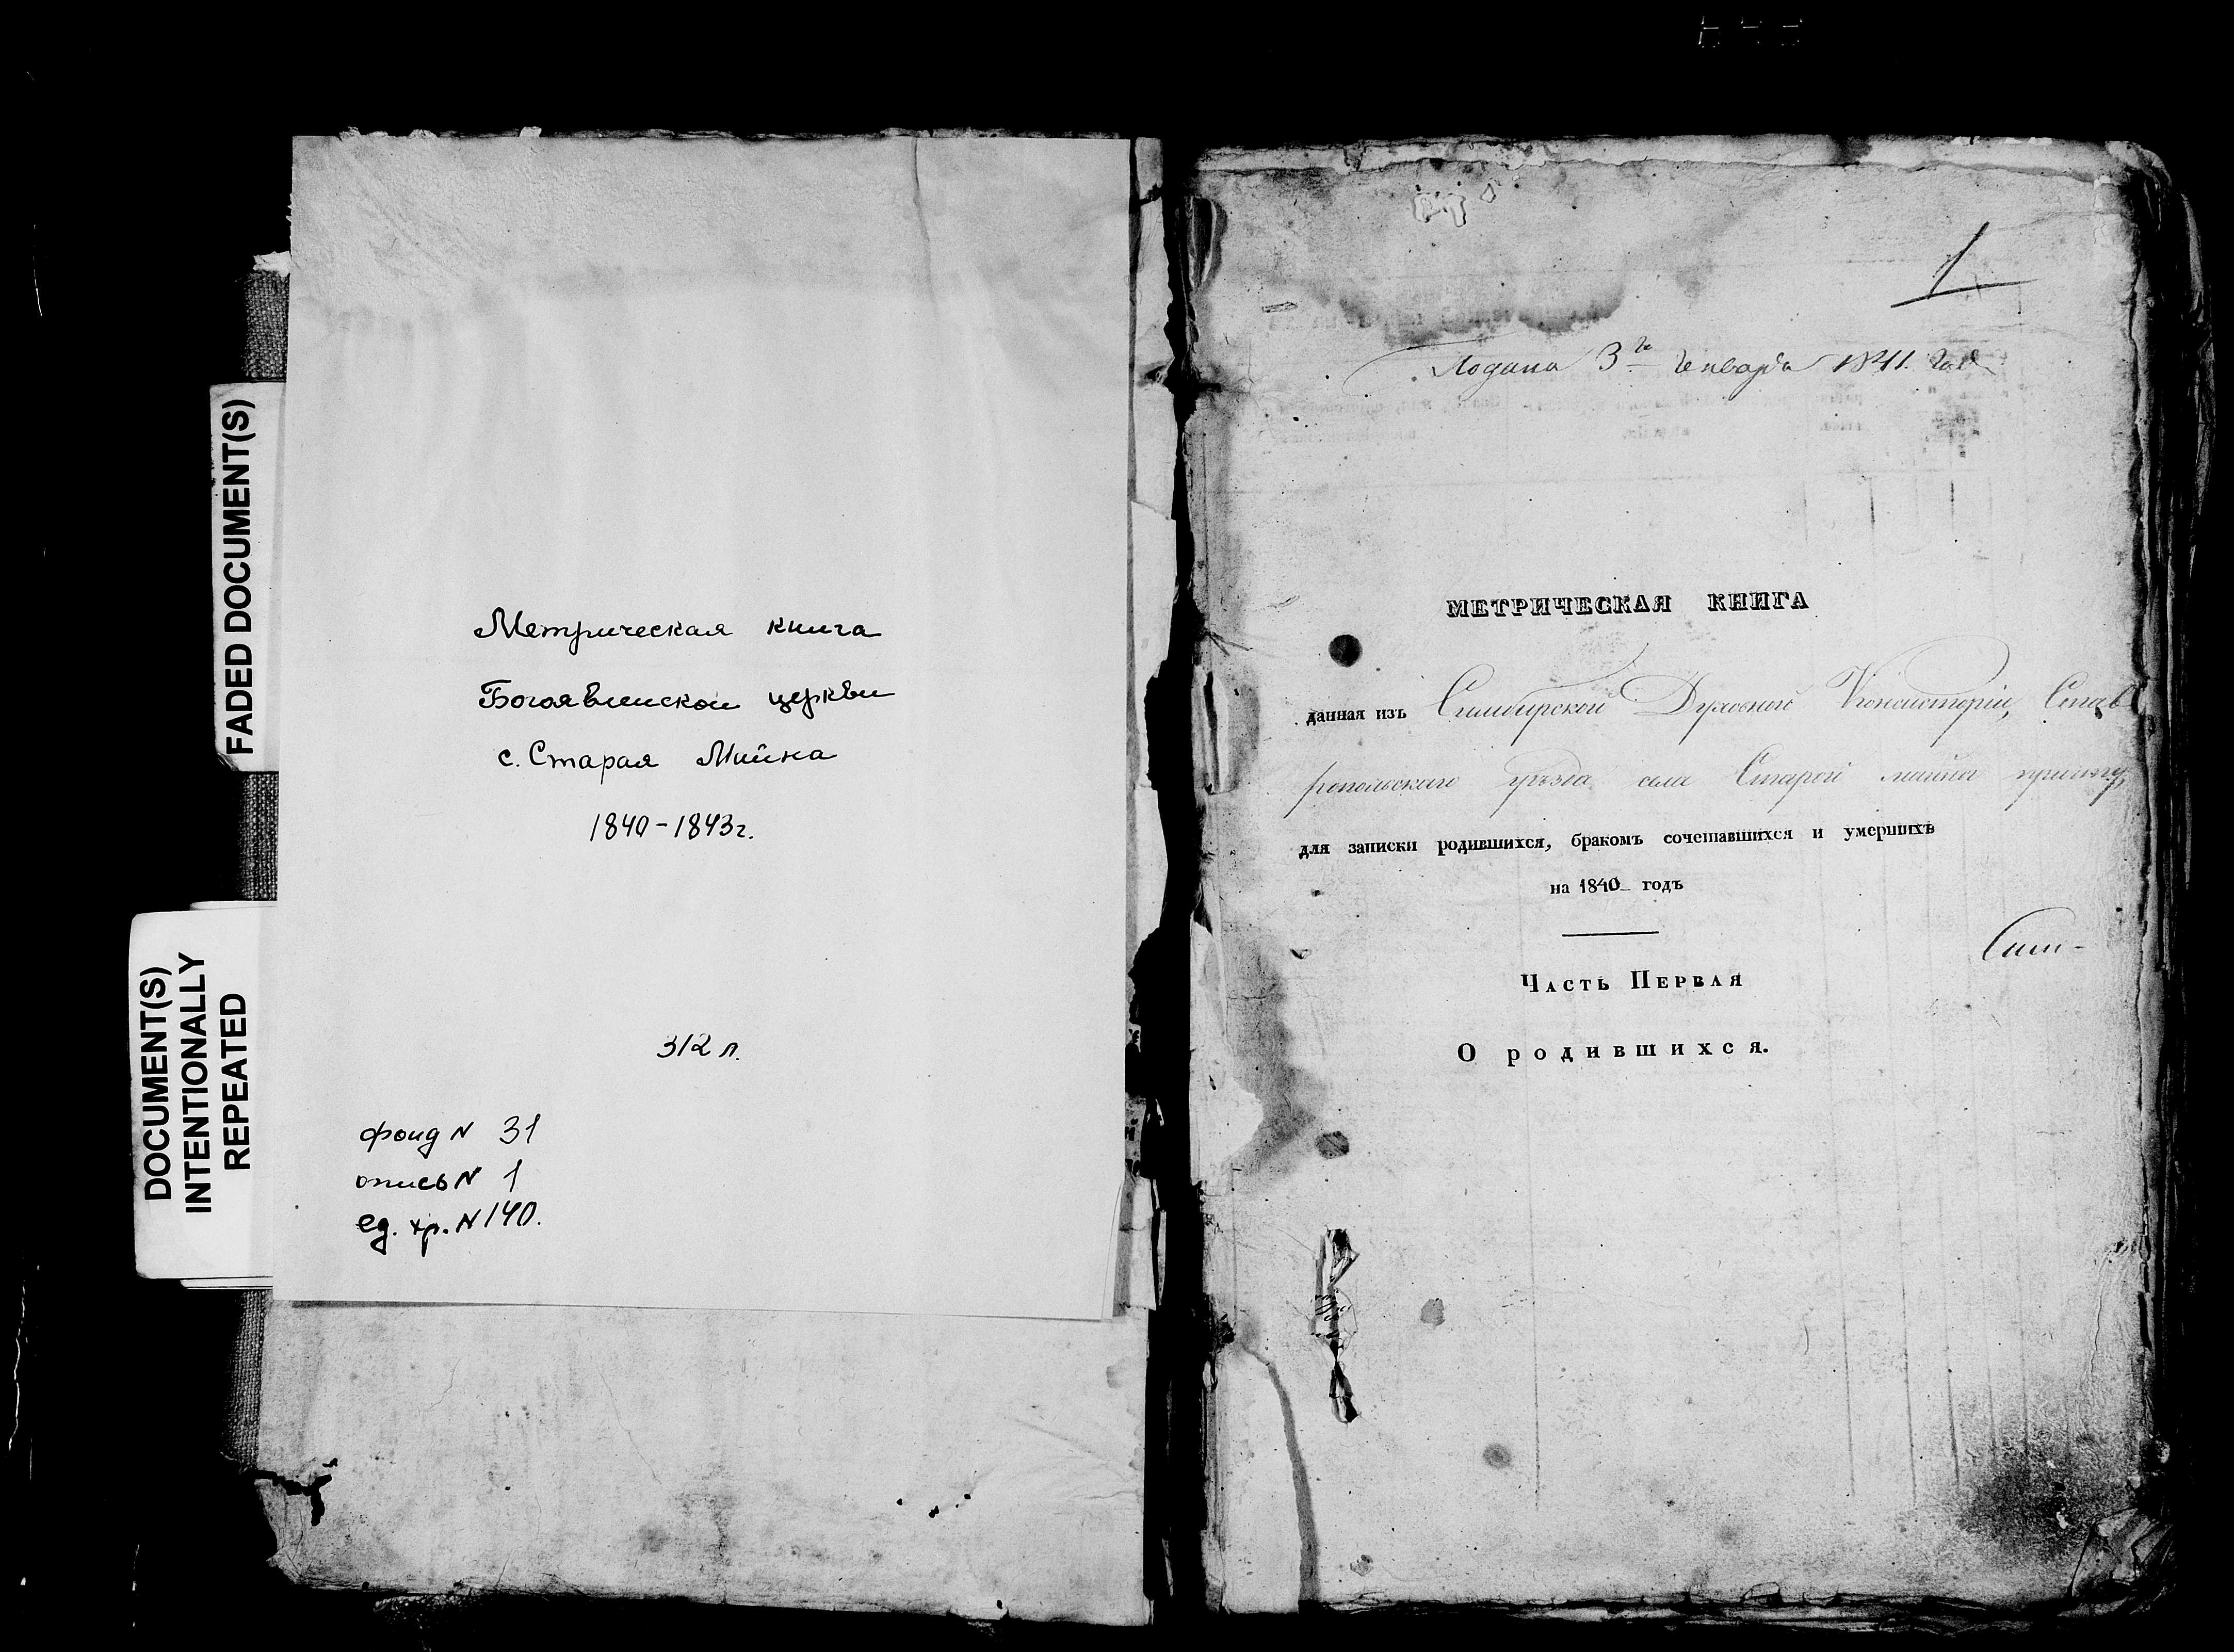 FADED DOCUMENT(S)
DOCUMENT(S)
INTENTIONALLY
REPEATED
Метрическая книга
Богоявленской церкви
с. Старая Майна
1840-1843г.
312 л.
фонд N 31
опись N 1
ед. хр. N 140.
1
Подана 3го Генваря 1841. года
МЕТРИЧЕСКАЯ КНИГА
данная изъ Симбирской Духовной Консисторіи, Став
ропольскаго уѣзда села Старой майны
для записки родившихся, бракомъ сочетавшихся и умершихъ
на 1840 годъ
Сим-
Часть Первая
О родившихся.